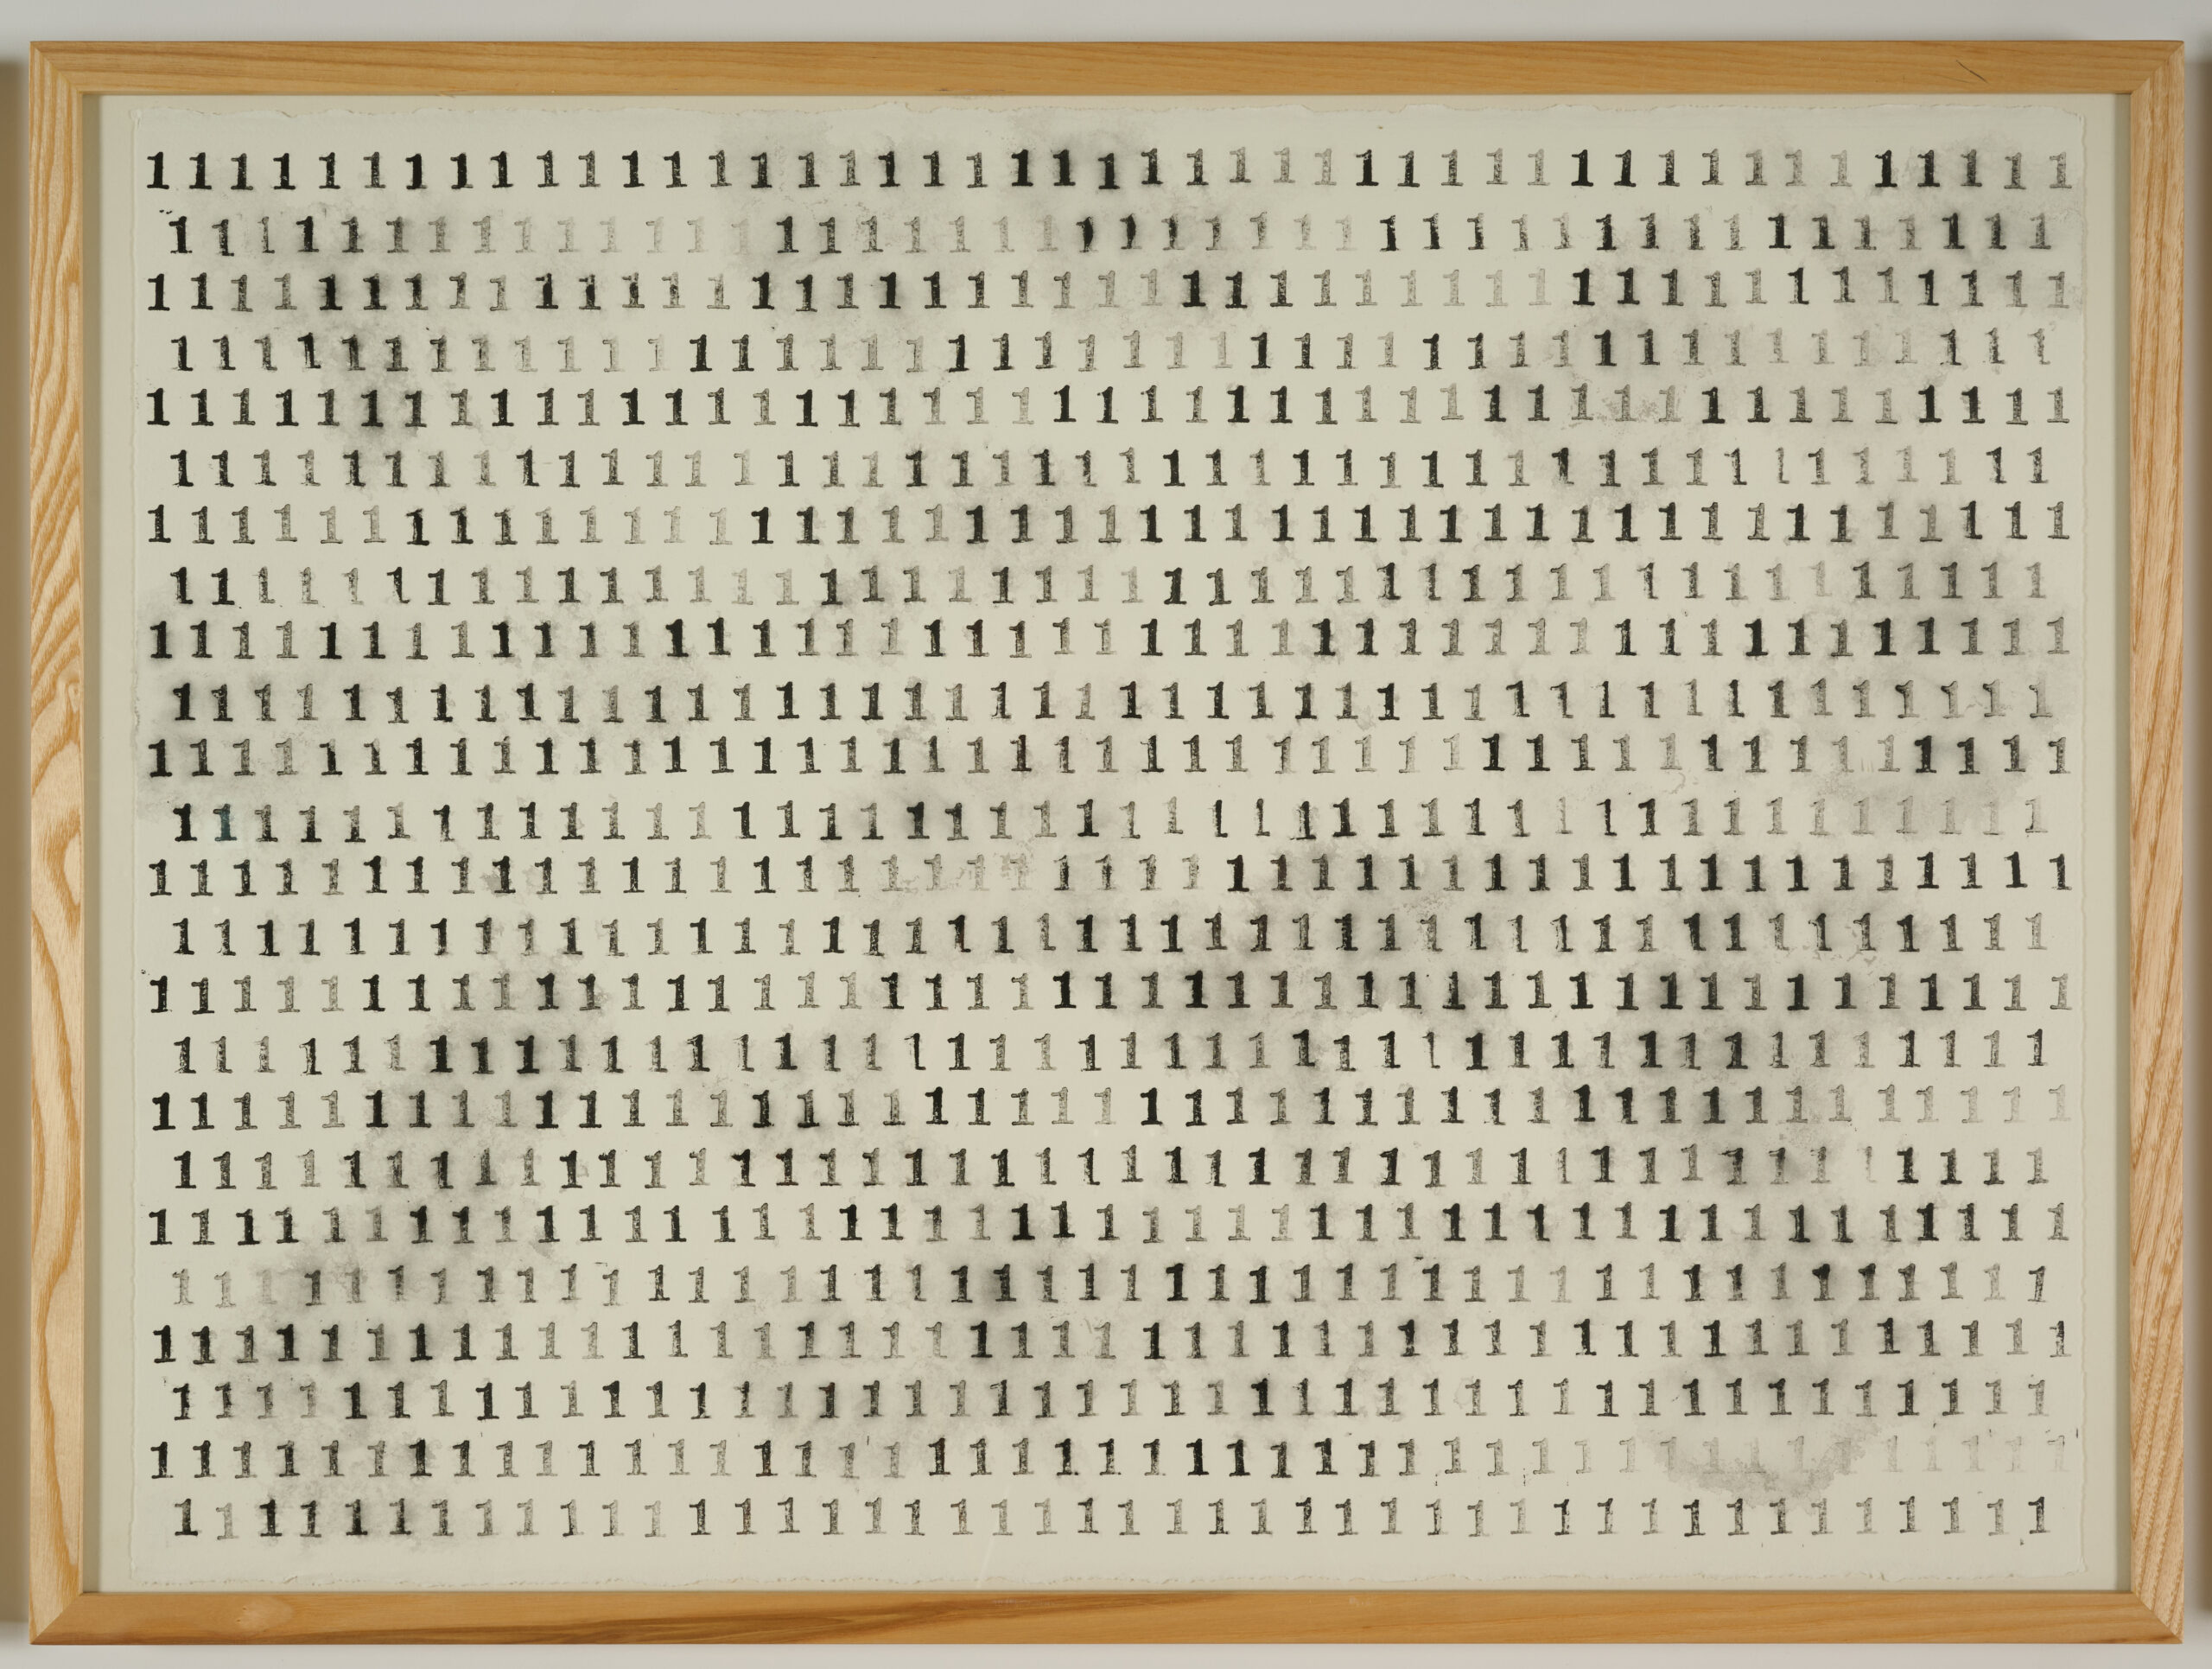 111111111111111111111111111111111111111111111
11111111111111111111111111111111111111111111
111111111111111111111111111111111111111111111
11111111111111111111111111111111111111111111
111111111111111111111111111111111111111111111
11111111111111111111111111111111111111111111
111111111111111111111111111111111111111111111
11111111111111111111111111111111111111111111
111111111111111111111111111111111111111111111
11111111111111111111111111111111111111111111
111111111111111111111111111111111111111111111
11111111111111111111111111111111111111111111
111111111111111111111111111111111111111111111
11111111111111111111111111111111111111111111
111111111111111111111111111111111111111111111
11111111111111111111111111111111111111111111
111111111111111111111111111111111111111111111
11111111111111111111111111111111111111111111
111111111111111111111111111111111111111111111
11111111111111111111111111111111111111111111
111111111111111111111111111111111111111111111
11111111111111111111111111111111111111111111
111111111111111111111111111111111111111111111
11111111111111111111111111111111111111111111